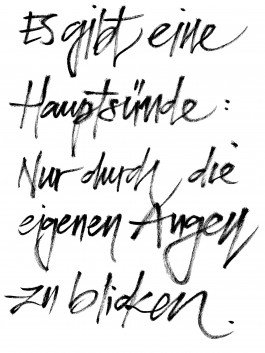 Es gibt eine
Hauptsünde:
Nur durch die
eigenen Augen
zu blicken.